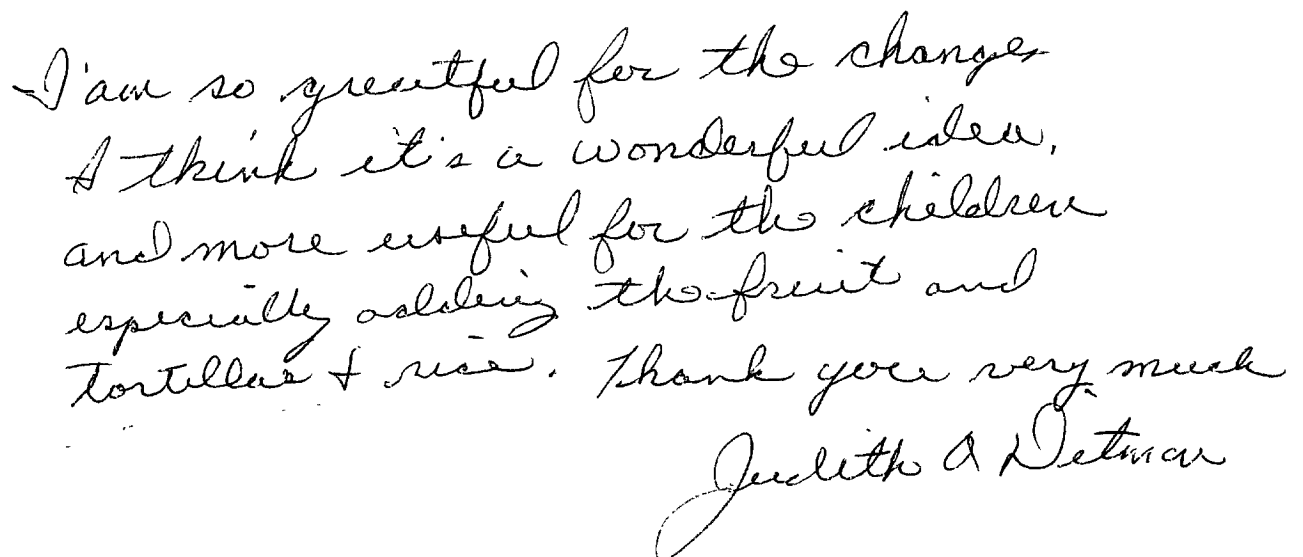 I'am so greatful for the changes
I think it's a wonderful idea,
and more useful for the children
especially adding the fruit and
tortillas & rice. Thank you very much
Judith A Ditman